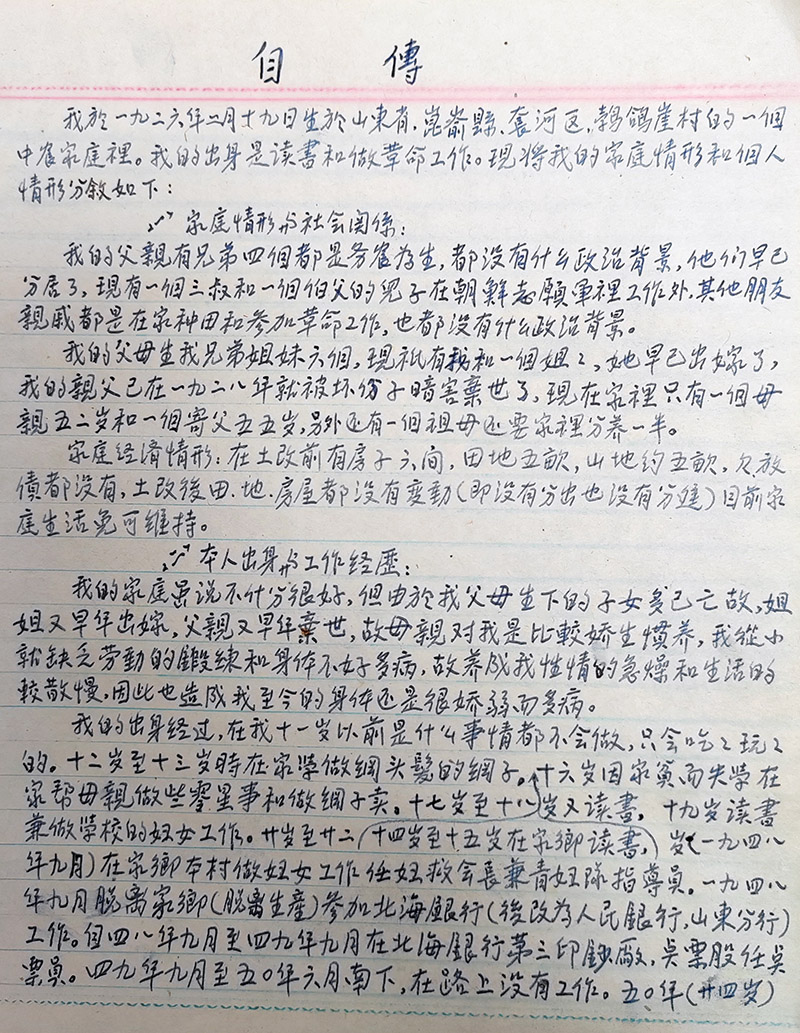 自傳
我於一九二六年二月十九日生於山東省,崑嵛縣、套河区,鹁鴿崖村的一個
中農家庭裡。我的出身是读書和做革命工作。現將我的家庭情形和個人
情形分敘如下:
家庭情形与社会関係:
我的父親有兄弟四個都是务農為生,都没有什么政治背景,他们早已
分居了,現有一個三叔和一個伯父的児子在朝鮮志願軍裡工作外,其他朋友
親戚都是在家种田和参加革命工作,也都没有什么政治背景。
我的父母生我兄弟姐妹六個,現祗有我和一個姐々,她早已出嫁了,
我的親父已在一九二八年就被坏份子暗害棄世了,現在家裡只有一個母
親五二岁和一個寄父五五岁,另外还有一個祖母还要家裡分养一半。
家庭经濟情形:在土改前有房子六间,田地五畝,山地约五畝,欠放
債都没有,土改後田.地.房屋都没有変動(即没有分出也没有分進)目前家
庭生活免可維持。
本人出身与工作经歷:
我的家庭虽说不什分很好,但由於我父母生下的子女多已亡故,姐
姐又早年出嫁,父親又早年棄世,故母親对我是比較娇生慣养,我從小
就缺乏劳動的鍛練和身体不好多病,故养成我性情的急燥和生活的
較散慢,因此也造成我至今的身体还是很娇弱而多病。
我的出身经过,在我十一岁以前是什么事情都不会做,只会吃々玩々
的。十二岁至十三岁時在家学做網头髮的網子。十六岁因家貧而失学在
家帮母親做些零星事和做網子卖。十七岁至十八岁又读書,十九岁读書
兼做学校的妇女工作。廿岁至廿二(十四岁至十五岁在家鄉读書,)岁(一九四八
年九月)在家鄉本村做妇女工作任妇救会長兼青妇隊指導員。一九四八
年九月脱离家鄉(脱离生産)参加北海銀行(後改為人民銀行,山東分行)
工作。自四八年九月至四九年九月在北海銀行第三印鈔廠,点票股任点
票員。四九年九月至五〇年六月南下,在路上没有工作。五〇年(廿四岁)